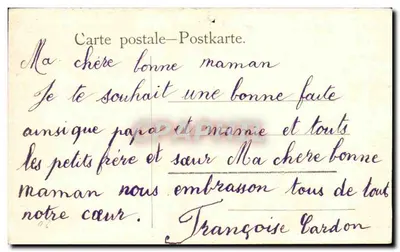 Carte postale—Postkarte.
Ma chère bonne maman
Je te souhait une bonne faite
ainsique papa et mamie et touts
les petits frère et sœur Ma chere bonne
maman nous embrasson tous de tout
notre cœur. Françoise Cardon